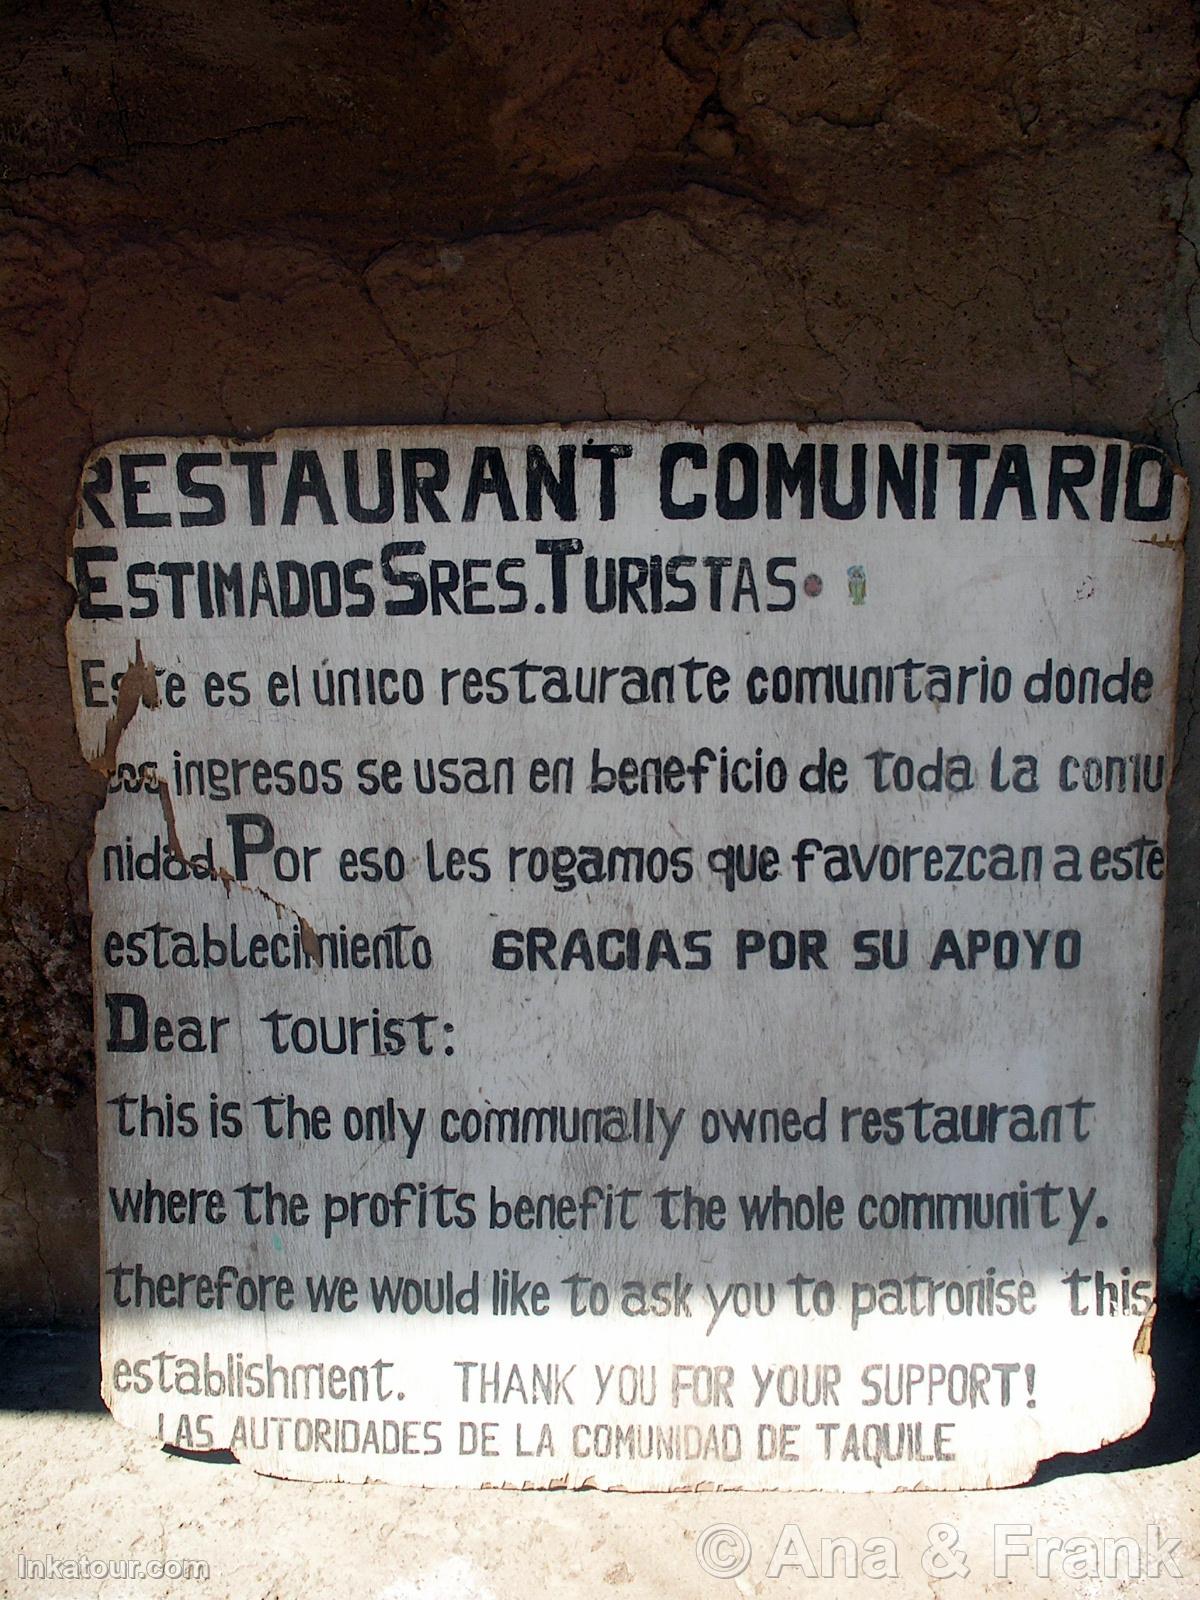 RESTAURANT COMUNITARIO
ESTIMADOS SRES. TURISTAS
Este es el único restaurante comunitario donde
los ingresos se usan en beneficio de toda la comu
nidad Por eso les rogamos que favorezcan a este
establecimiento GRACIAS POR SU APOYO
Dear tourist:
this is the only communally owned restaurant
where the profits benefit the whole community.
therefore we would like to ask you to patronise this
establishment. THANK YOU FOR YOUR SUPPORT!
LAS AUTORIDADES DE LA COMUNIDAD DE TAQUILE
© Ana & Frank
Inkatour.com